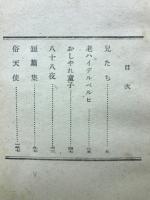 目次
兄たち
老ハイデルベルヒ
おしやれ童子
八十八夜
短篇集
俗天使